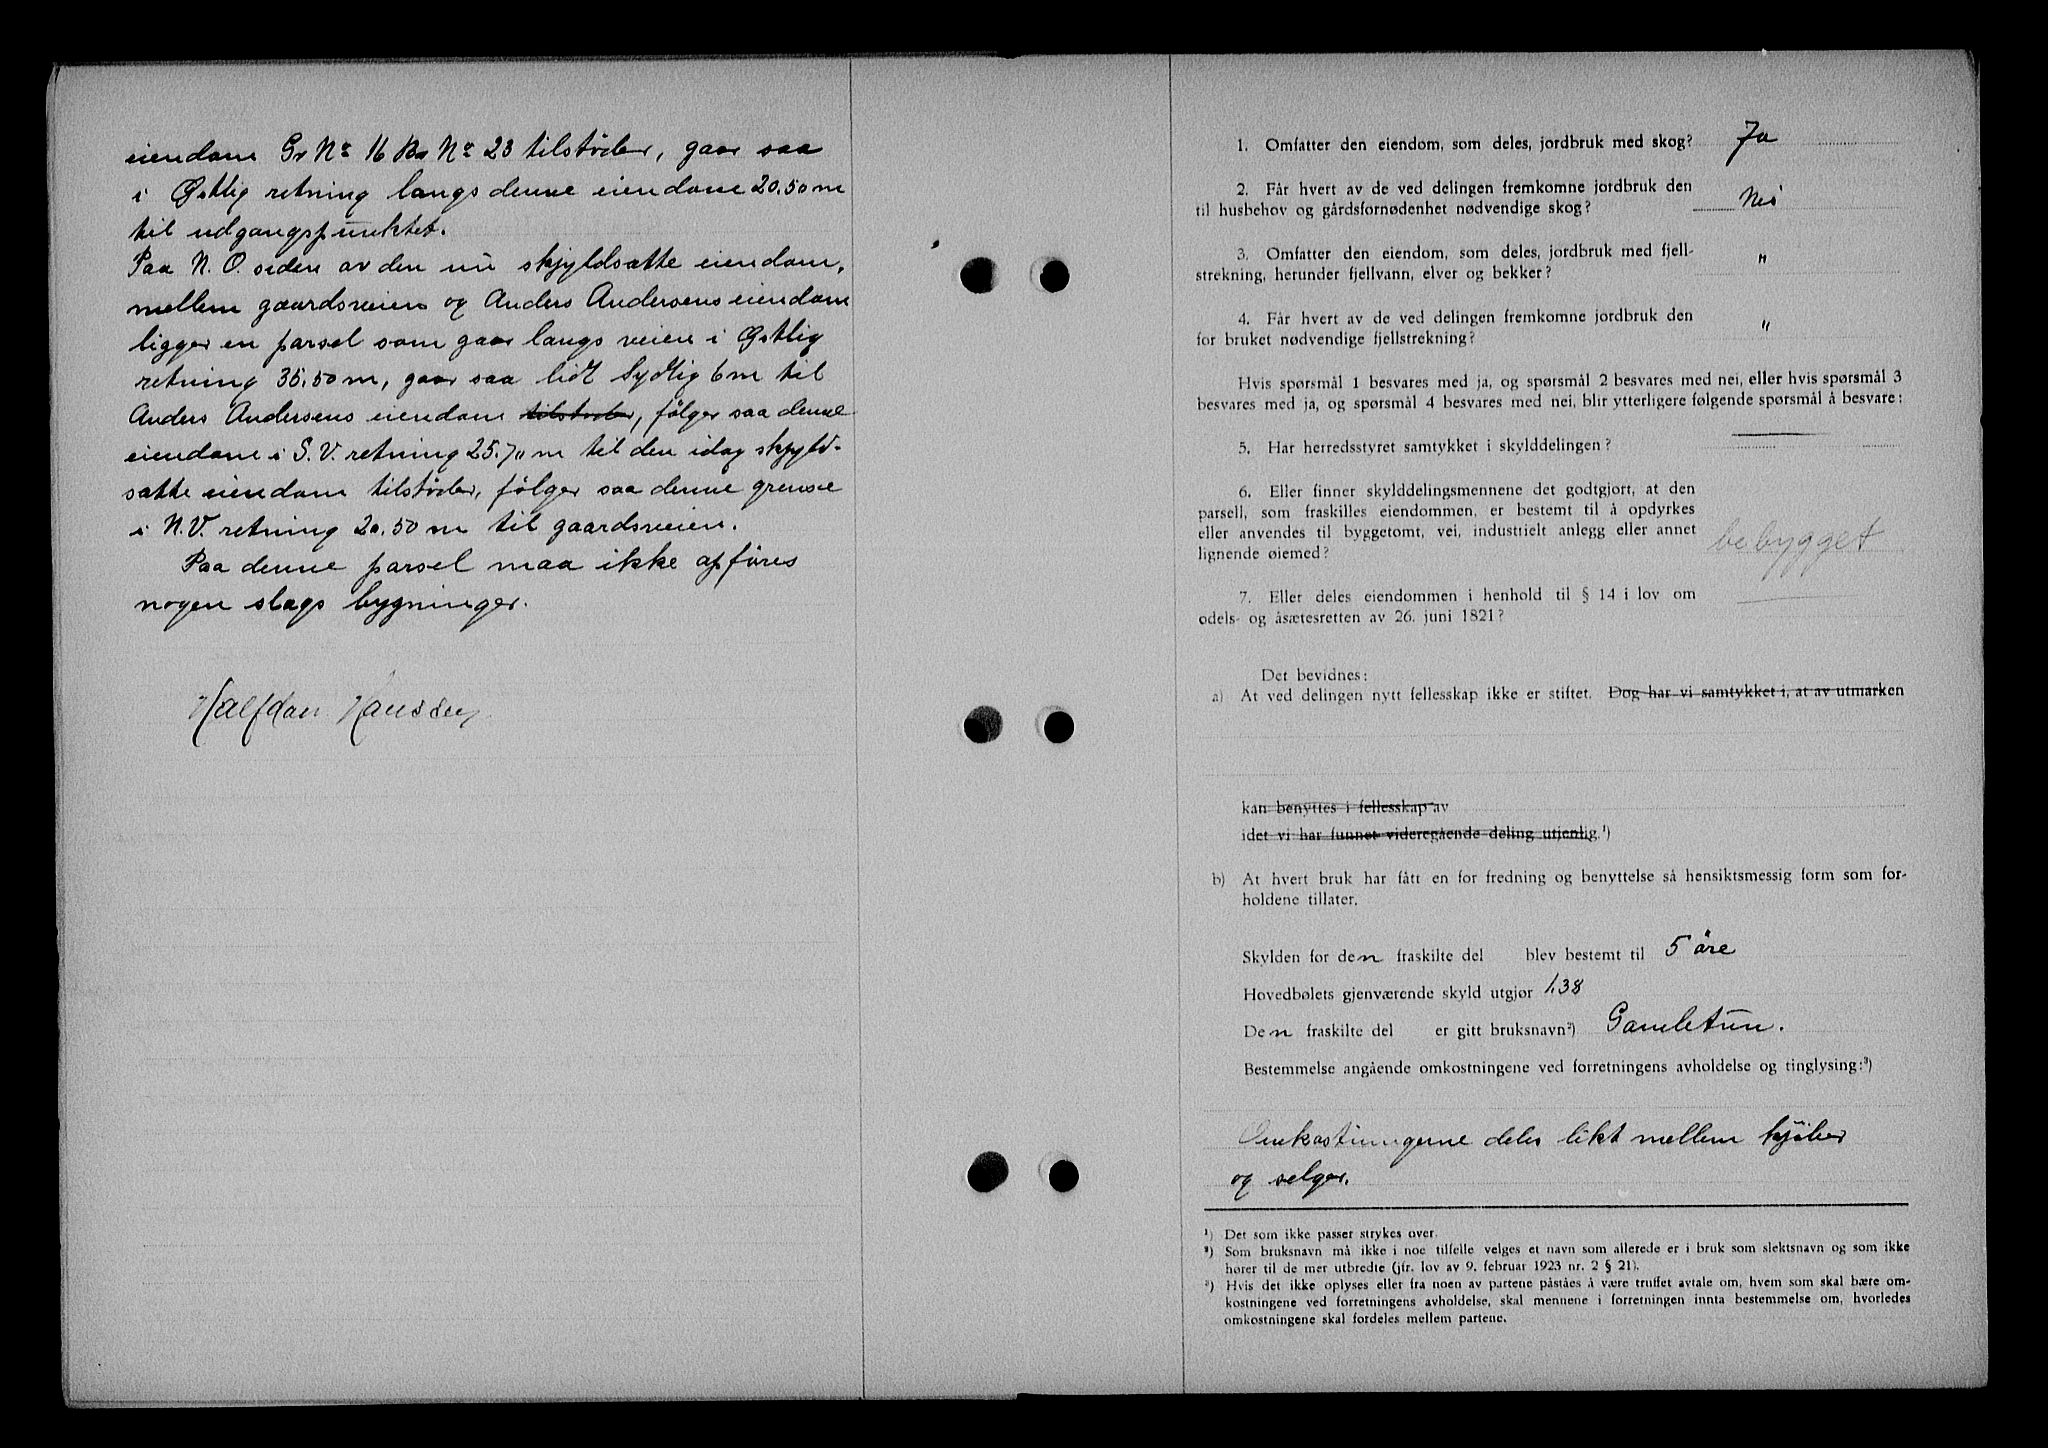 eiendom Gr Nr 16 Br Nr 23 tilstöder, gaar saa
i Östlig retning langs denne eiendom 20.50 m
til udgangspunktet.
Paa N. O. siden av den nu skjyldsatte eiendom,
mellem gaardsveien og Anders Andersens eiendom
ligger en parsel som gaar langs veien i Östlig
retning 35.50 m, gaar saa lidt Sydlig 6 m til
Anders Andersens eiendom tilstöder, følger saa denne
eiendom i S. V. retning 25.70 m til den idag skjyld-
satte eiendom tilstöder, følger saa denne grense
i N.V. retning 20.50 m til gaardsveien.
Paa denne parsel maa ikke opföres
nogen slags bygninger.
Halfdan Hanssen
1. Omfatter den eiendom, som deles, jordbruk med skog? Ja
2. Får hvert av de ved delingen fremkomne jordbruk den
til husbehov og gårdsfornødenhet nødvendige skog? Nei
3. Omfatter den eiendom, som deles, jordbruk med fjell-
strekning, herunder fjellvann, elver og bekker? "
4. Får hvert av de ved delingen fremkomne jordbruk den
for bruket nødvendige fjellstrekning? "
Hvis spørsmål 1 besvares med ja, og spørsmål 2 besvares med nei, eller hvis spørsmål 3
besvares med ja, og spørsmål 4 besvares med nei, blir ytterligere følgende spørsmål å besvare:
5. Har herredsstyret samtykket i skylddelingen?
6. Eller finner skylddelingsmennene det godtgjort, at den
parsell, som fraskilles eiendommen, er bestemt til å opdyrkes
eller anvendes til byggetomt, vei, industrielt anlegg eller annet
lignende øiemed? bebygget
7. Eller deles eiendommen i henhold til § 14 i lov om
odels- og åsætesretten av 26. juni 1821?
Det bevidnes:
a) At ved delingen nytt fellesskap ikke er stiftet. Dog har vi samtykket i, at av utmarken
kan benyttes i fellesskap av
idet vi har funnet videregående deling utjenlig.¹)
b) At hvert bruk har fått en for fredning og benyttelse så hensiktsmessig form som for-
holdene tillater.
Skylden for den fraskilte del blev bestemt til 5 öre
Hovedbølets gjenværende skyld utgjør 1.38
Den fraskilte del er gitt bruksnavn²) Gamletun.
Bestemmelse angående omkostningene ved forretningens avholdelse og tinglysing:³)
Omkostningerne deles likt mellem kjöber
og selger.
¹) Det som ikke passer strykes over.
²) Som bruksnavn må ikke i noe tilfelle velges et navn som allerede er i bruk som slektsnavn og som ikke
hører til de mer utbredte (jfr. lov av 9. februar 1923 nr. 2 § 21).
³) Hvis det ikke oplyses eller fra noen av partene påståes å være truffet avtale om, hvem som skal bære om-
kostningene ved forretningens avholdelse, skal mennene i forretningen innta bestemmelse om, hvorledes
omkostningene skal fordeles mellem partene.